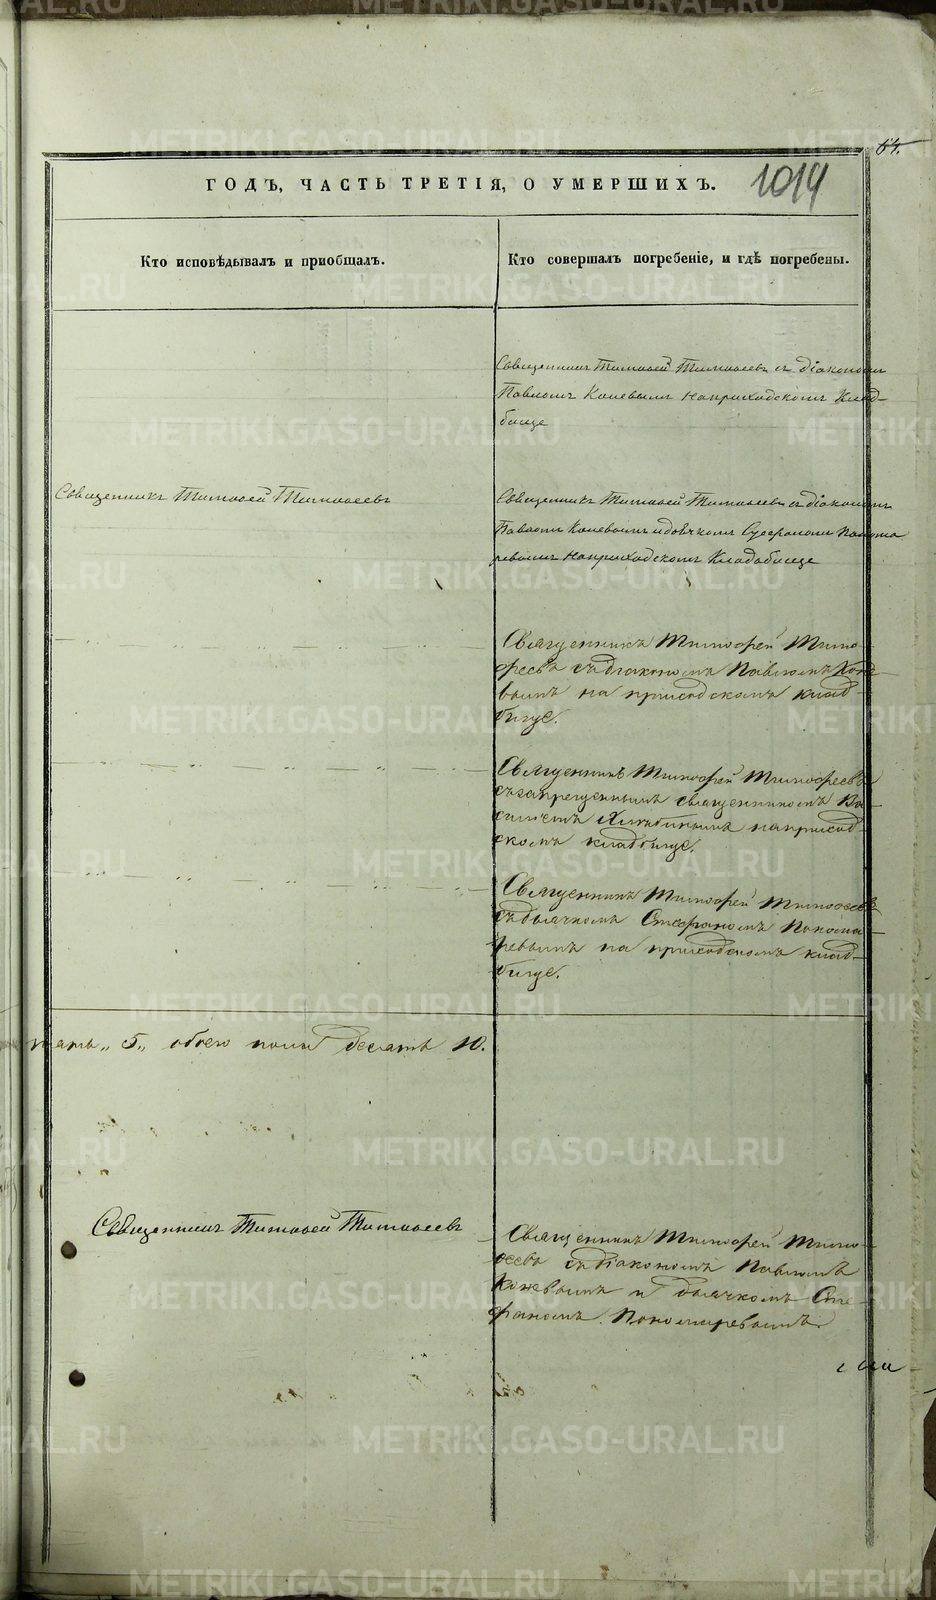 64.
ГОДЪ, ЧАСТЬ ТРЕТІЯ, О УМЕРШИХЪ.
1014
Кто исповѣдывалъ и пріобщалъ.
Кто совершалъ погребеніе, и гдѣ погребены.
Священникъ Тимоѳей Тимоѳеевъ съ діакономъ
Павломъ Коневымъ на приходскомъ Клад-
бище
Священникъ Тимоѳей Тимоѳеевъ
Священникъ Тимоѳей Тимоѳеевъ съ діакономъ
Павломъ Коневымъ и дьячкомъ Стефаномъ Понома
ревымъ на приходскомъ Кладбище
Священникъ Тимофей Тимо-
феевъ съ діакономъ Павломъ Коне-
вымъ на приходскомъ клад-
бище.
Священникъ Тимофей Тимофеевъ
съ запрещеннымъ священникомъ Ва-
на приход-
скомъ кладбище.
Священникъ Тимофей Тимофеевъ
съ дьячкомъ Стефаномъ Понома-
ревымъ на приходскомъ клад-
бище.
пять „5„ обоего пола десять 10.
Священникъ Тимоѳей Тимоѳеевъ
Священникъ Тимофей Тимо-
феевъ съ діакономъ Павломъ
Коневымъ и дьячкомъ Сте-
фаномъ Пономаревымъ.
METRIKI.GASO-URAL.RU